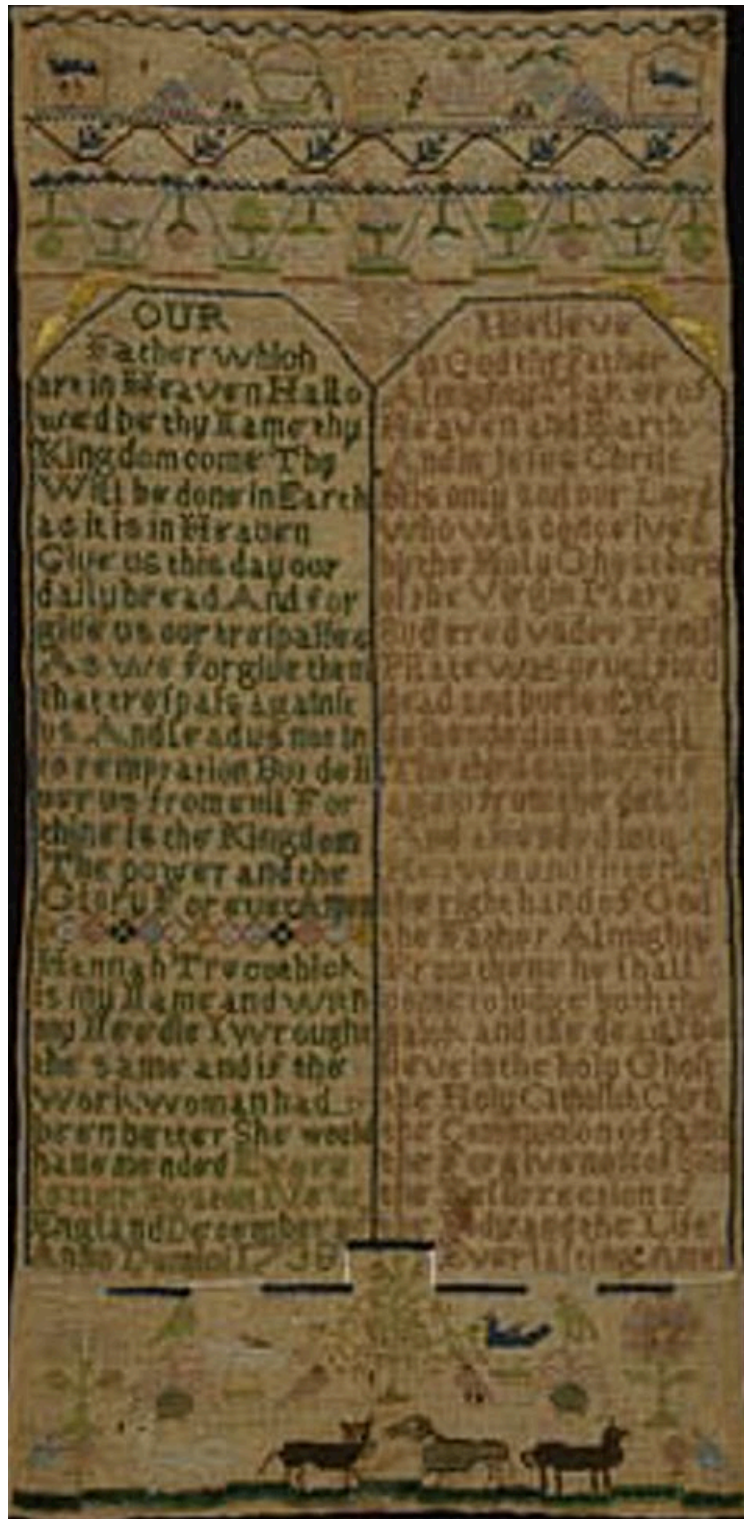 OUR
Father which
art in Heaven Hallo
wed be thy Name thy
Kingdom come Thy
Will be done in Earth
as it is in Heaven
Give us this day our
daily bread And for
give us our trespasses
As we forgive them
that trespass against
us And lead us not in
to temptation But deli
ver us from evil For
thine is the Kingdom
The power and the
Glory For ever Amen
Hannah Trecothick
is my Name and with
my Needle I wrought
the same and if the
work woman had
been better She would
have mended Every
letter Boston New
England December
Anno Domini 1738
I Believe
in God the Father
Almighty Maker of
Heaven and Earth
And in Jesus Christ
his only son our Lord
Who was conceived
by the Holy Ghost born
of the Virgin Mary
Suffered under
Pilate was crucified
dead and buried He
descended into Hell
The third day he
again from the dead
And ascended into
Heaven and
the right hand of God
the Father Almighty
From thence he shall
come to judge both the
quick and the dead
in the holy Ghost
the Holy Catholick
the Communion of
the Forgiveness of
the Resurrection of
the Body and the Life
Everlasting Amen